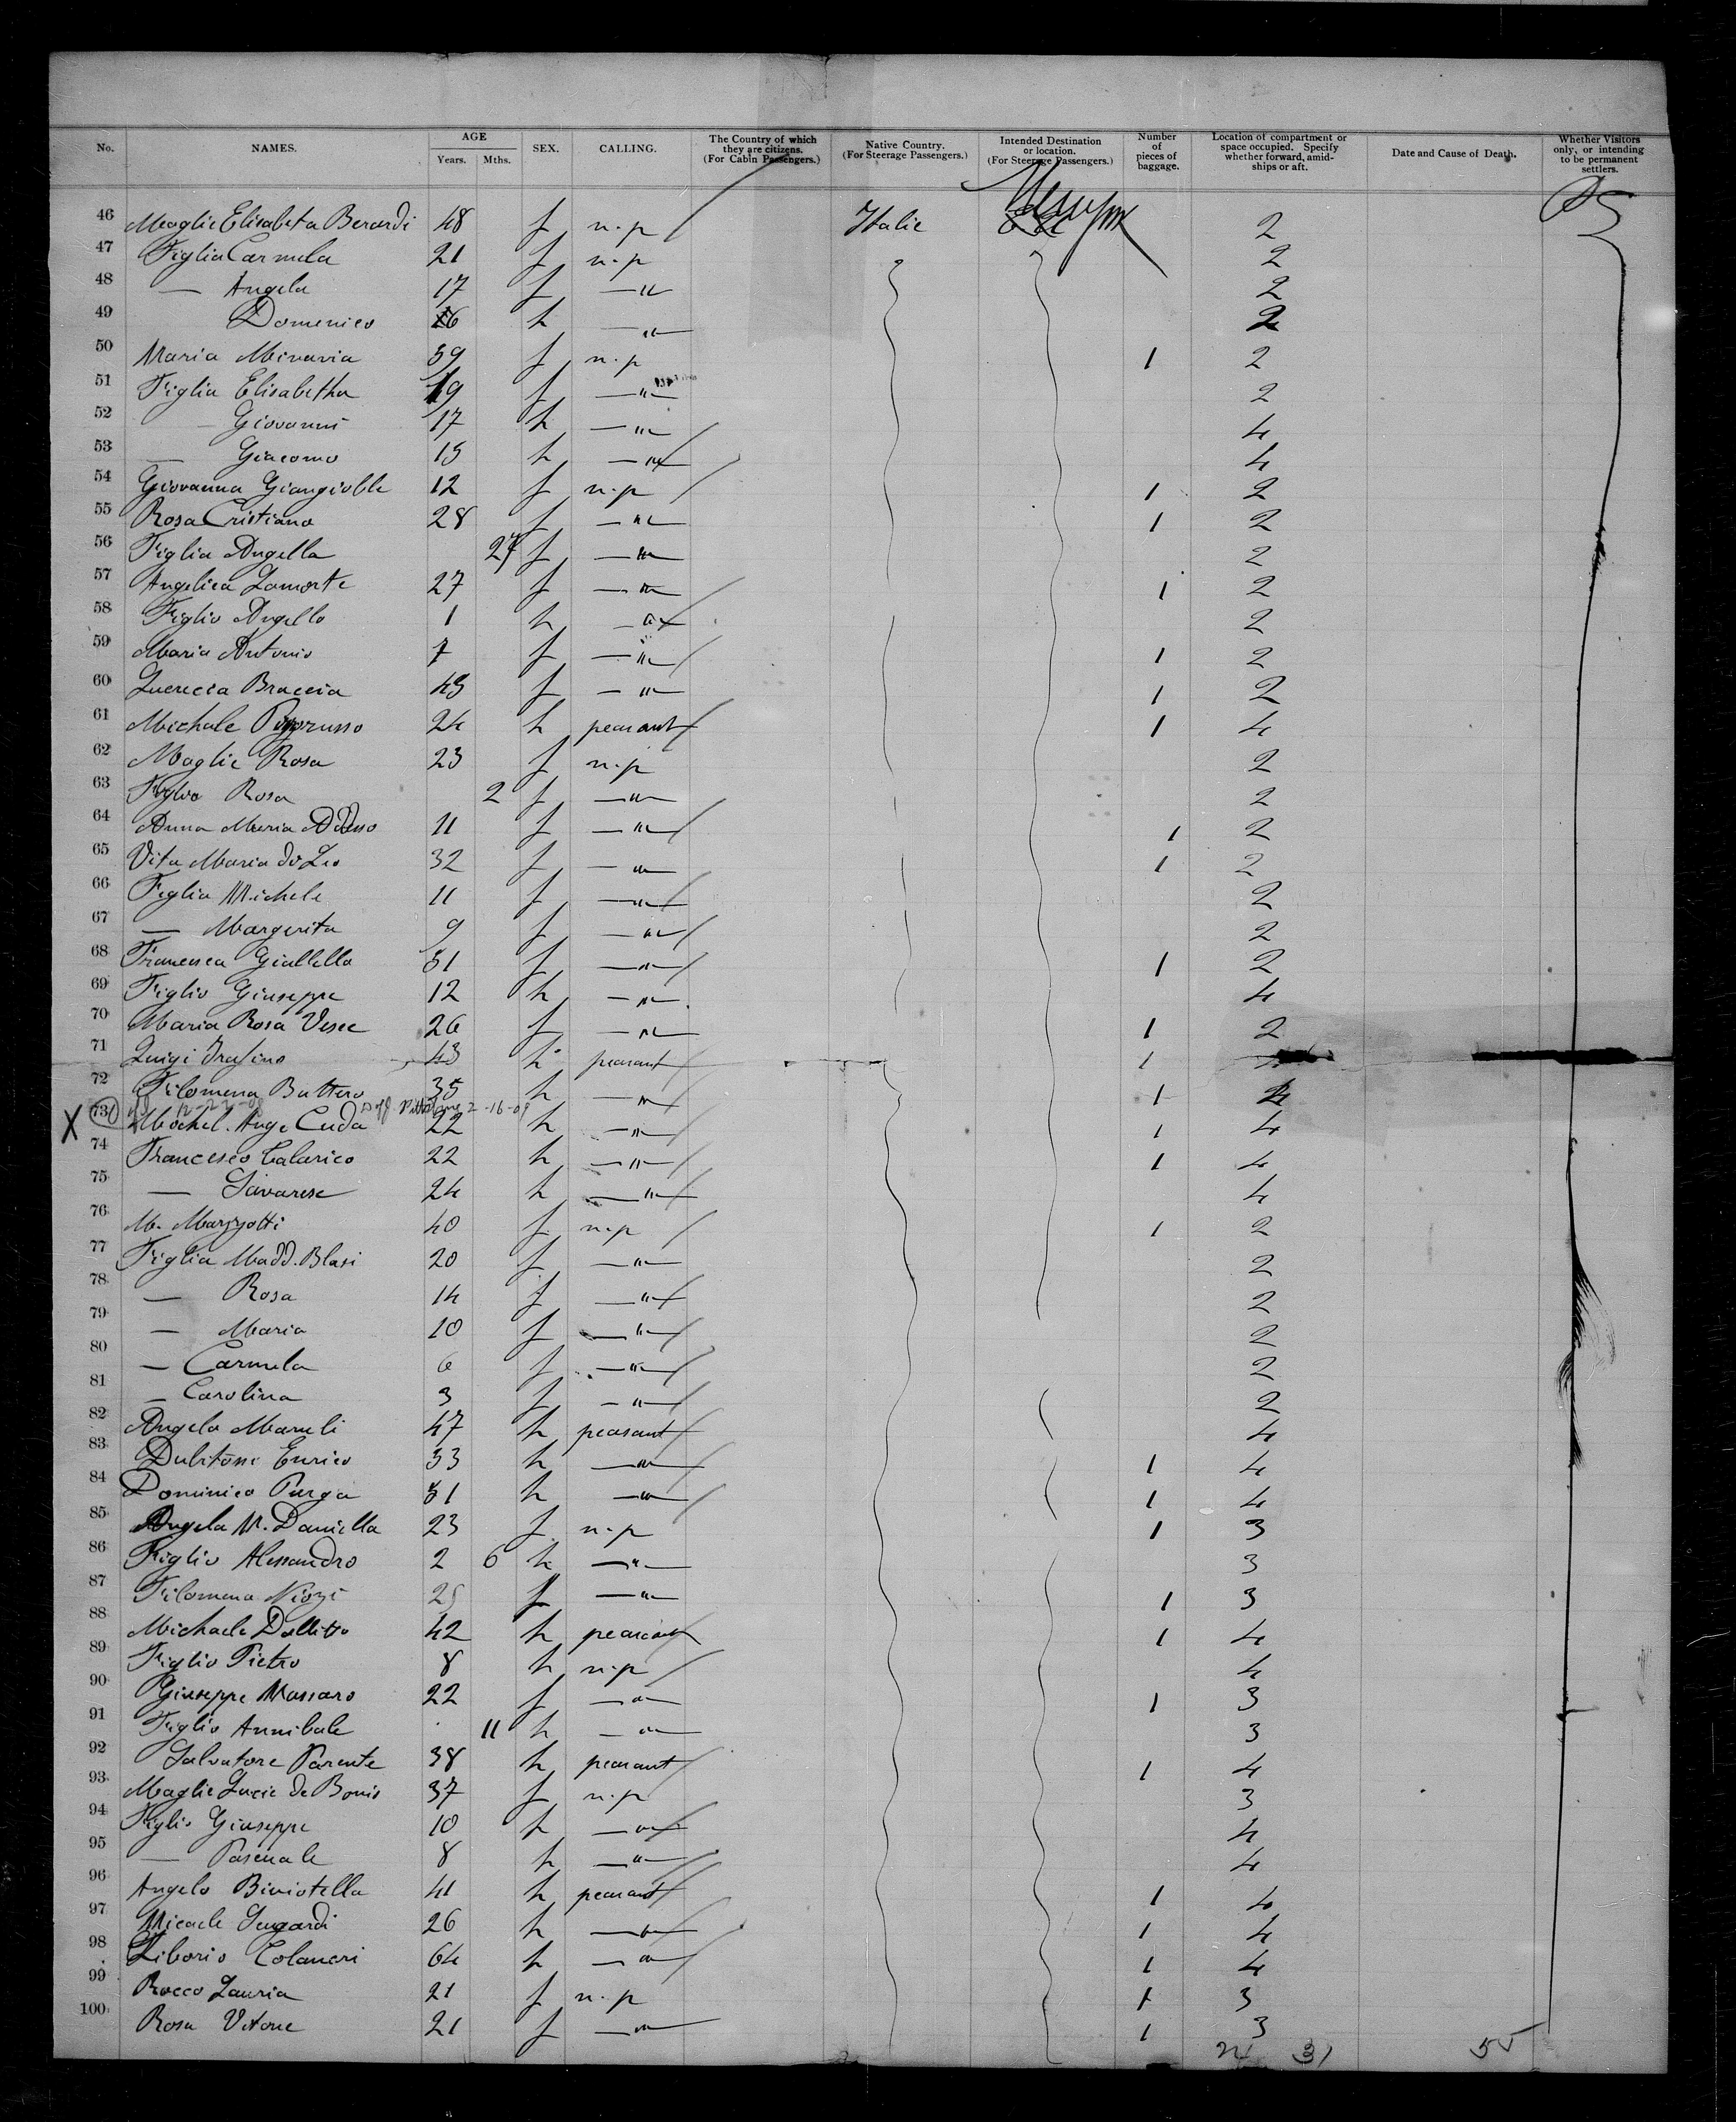 No. NAMES. AGE Years. Mths. SEX. CALLING. The Country of which they are citizens. (For Cabin Passengers.) Native Country. (For Steerage Passengers.) Intended Destination or location. (For Steerage Passengers.) Number of pieces of baggage. Location of compartment or space occupied. Specify whether forward, amidships or aft. Date and Cause of Death. Whether Visitors only, or intending to be permanent settlers.
46 Moglie Elisabeta Berardi 48 f n.p Italie 2
47 Figlia Carmela 21 f n.p 2
48 — Angela 17 f —"— 2
49 Domenico 16 h —"— 2
50 Maria Minavia 39 f n.p 1 2
51 Figlia Elisabetha 19 f —"— 2
52 — Giovanni 17 h —"— 4
53 — Giacomo 15 h —"— 4
54 Giovanna Giangioble 12 f n.p 1 2
55 Rosa Cristiano 28 f —"— 1 2
56 Figlia Angella 27 f —"— 2
57 Angelica Lamorte 27 f —"— 1 2
58 Figlio Angello 1 h —"— 2
59 Maria Antonio 7 f —"— 1 2
60 Lucrecia Braccia 43 f —"— 1 2
61 Michele 24 h peasant 1 4
62 Moglie Rosa 23 f n.p 2
63 Figlia Rosa 2 f —"— 2
64 Anna Maria 11 f —"— 1 2
65 Vita Maria di Leo 32 f —"— 1 2
66 Figlia Michele 11 f —"— 2
67 — Margerita 9 f —"— 2
68 Francesca Giallella 31 f —"— 1 2
69 Figlio Giuseppe 12 h —"— 4
70 Maria Rosa Vesce 26 f —"— 1 2
71 Luigi Trafino 43 h peasant 1
72 Filomena Buttero 35 h —"— 1 4
X 73 Michel. Ange Cuda 22 h —"— 1 4
74 Francesco Calarico 22 h —"— 1 4
75 — Savarese 24 h —"— 4
76 M. Mazzotti 40 f n.p 1 2
77 Figlia Madd. Blasi 20 f —"— 2
78 — Rosa 14 f —"— 2
79 — Maria 10 f —"— 2
80 — Carmela 6 f —"— 2
81 — Carolina 3 f —"— 2
82 Angelo Maruli 47 h peasant 4
83 Dubitossi Enrico 33 h —"— 1 4
84 Dominico Purga 31 h —"— 1 4
85 Angela M. Daniella 23 f n.p 1 3
86 Figlio Alessandro 2 6 h —"— 3
87 Filomena 25 f —"— 1 3
88 Michaele Dallitto 42 h peasant 1 4
89 Figlio Pietro 8 h n.p 4
90 Giuseppe Massaro 22 f —"— 1 3
91 Figlio Annibale 11 h —"— 3
92 Salvatore Parente 38 h peasant 1 4
93 Moglie Lucie de Bonis 37 f n.p 3
94 Figlio Giuseppe 10 h —"— 4
95 — Pascuale 8 h —"— 4
96 Angelo Biniotella 41 h peasant 1 4
97 Micaele Lugardi 26 h —"— 1 4
98 Liborio Colaneri 64 h —"— 1 4
99 Rocco Lauria 21 f n.p 1 3
100 Rosa Vitone 21 f —"— 1 3
24 31 55